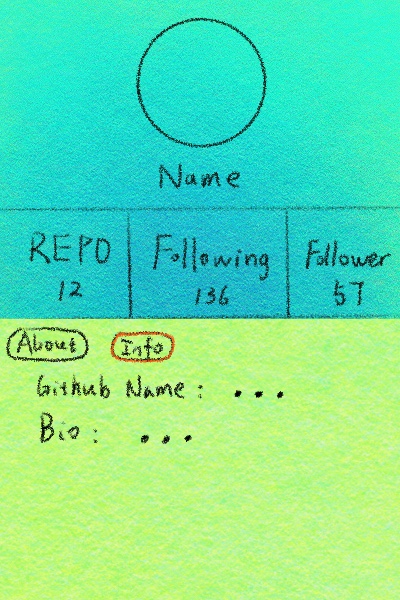 Name
REPO Following Follower
12 136 57
About Info
Github Name: ...
Bio: ...